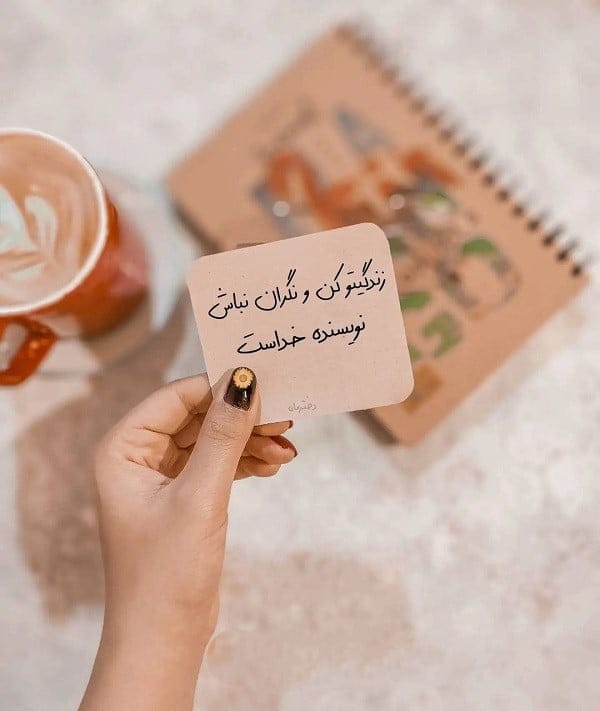 زندگیتو کن و نگران نباش
نویسنده خداست
دهتریان